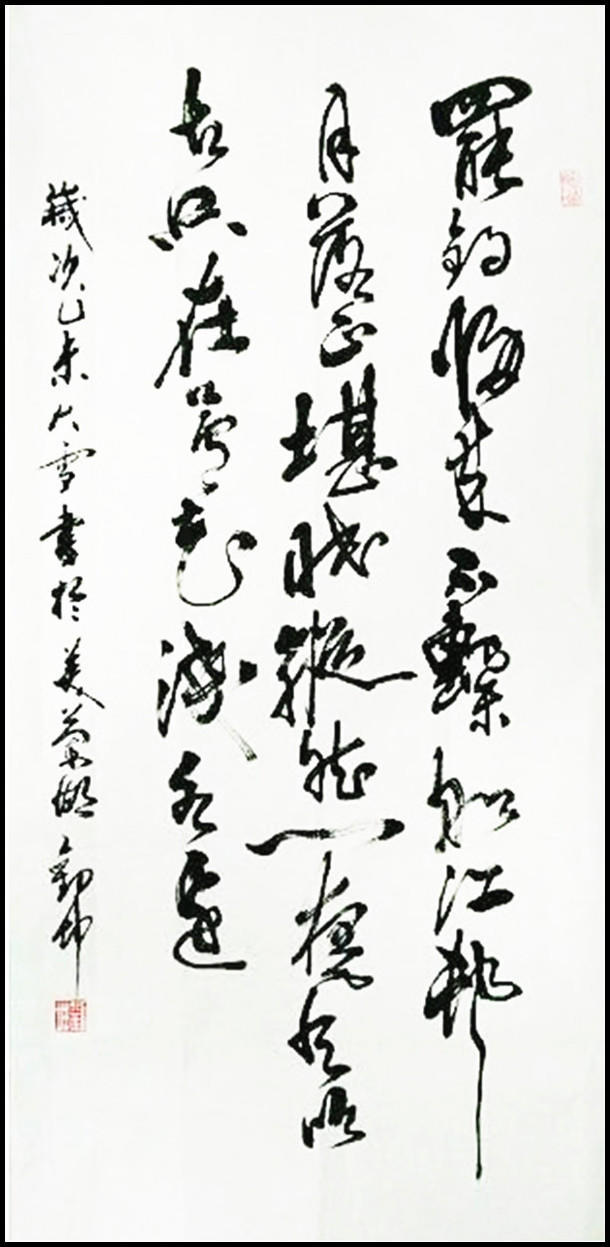 罷釣歸來不繫船江邨
月落正堪眠縱然一夜風吹
去只在蘆花淺水邊
歲次乙未大雪書於美蘭湖